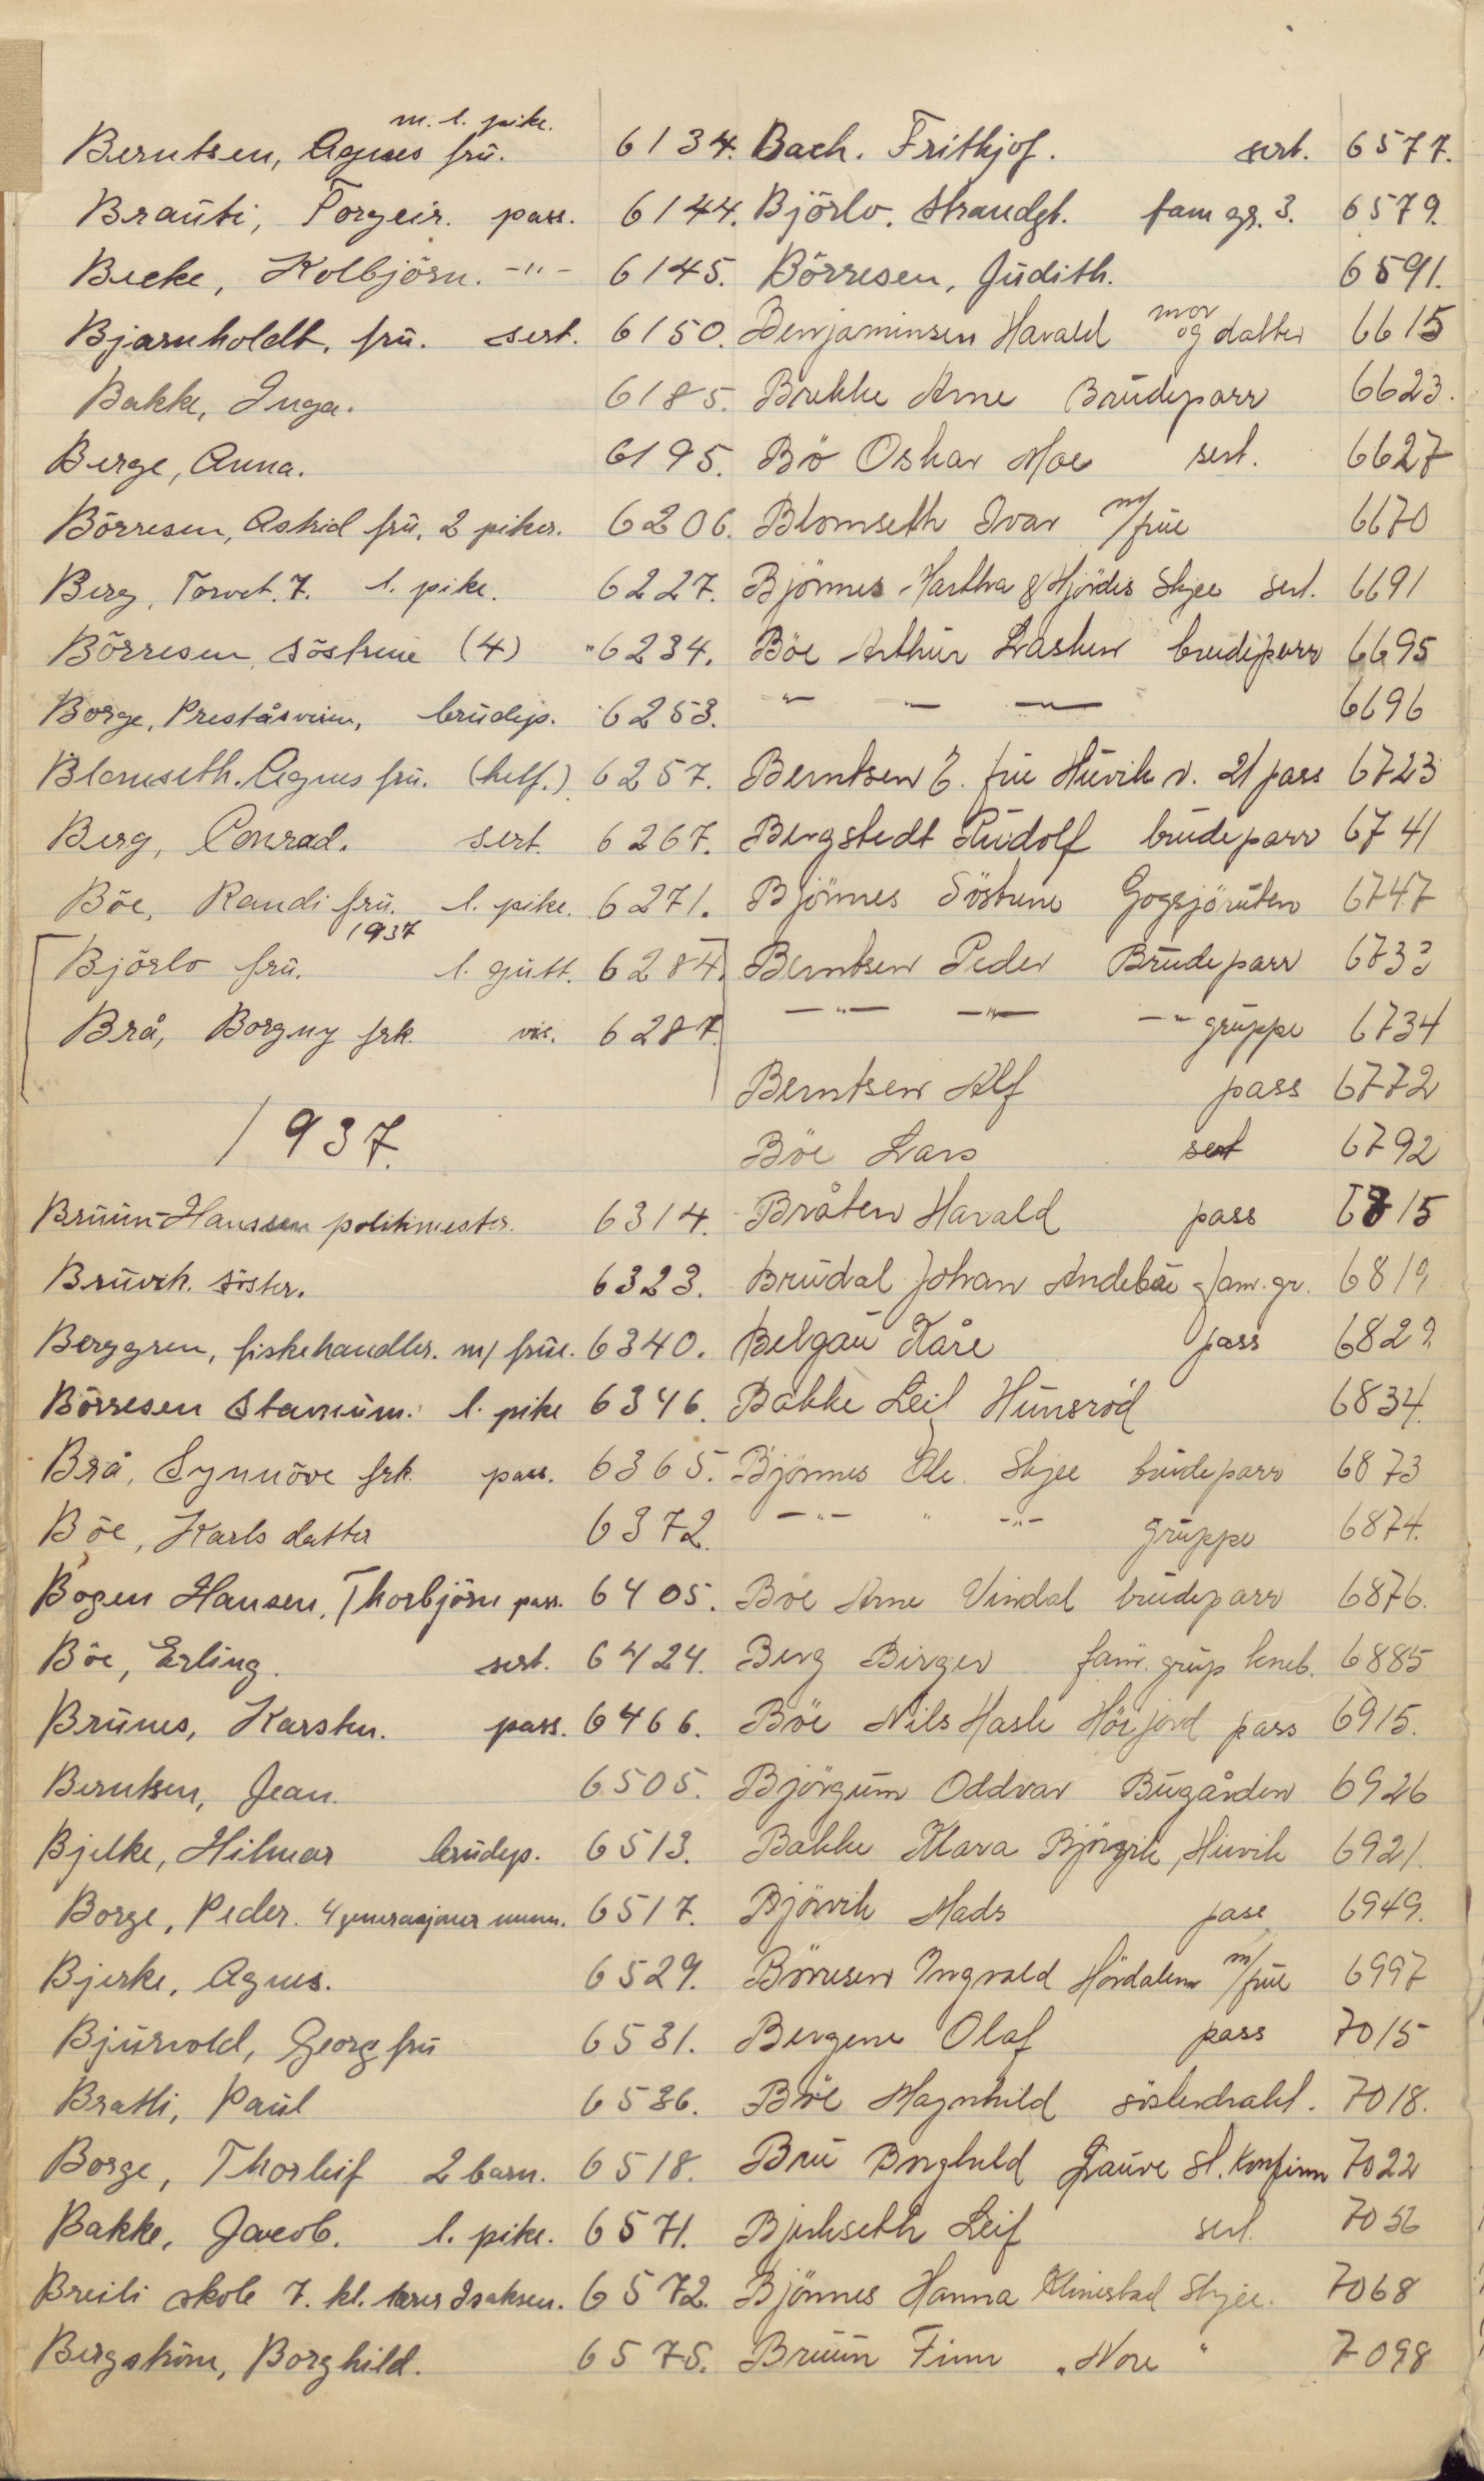 m. l. pike.
Berntsen, Agnes frü. 6134.
Braüti, Torgeir. pass. 6144.
Becke, Kolbjörn. -"- 6145.
Bjarnholdt, frü. sert. 6150.
Bakke, Inga. 6185.
Berge, Anna. 6195.
Börresen, Astrid frü, 2 piker. 6206.
Berg, Torvet. 7. l. pike. 6227.
Börresen, söstrene (4) " 6234.
Borge, Preståsveien, brüdep. 6253.
Blomseth. Agnes frü. (helf.) 6257.
Berg, Conrad. sert. 6267.
Böe, Randi frü. l. pike. 6271.
1937
Björlo frü. l. gütt. 6284.
Brå, Borgny frk. vis. 6287.
1937.
Brüün-Hanssen politimester. 6314.
Brüvik. söster. 6323.
Berggren, fiskehandler. m/ früe. 6340.
Börresen Stamüm. l. pike 6346.
Brå, Synnöve frk. pass. 6365.
Böe, Karls datter 6372.
Bogen Hansen, Thorbjörn pass. 6405.
Böe, Erling. sert. 6424.
Brünes, Karsten. pass. 6466.
Berntsen, Jean. 6505.
Bjelke, Hilmar brüdep. 6513.
Borge, Peder. 4 generasjoner 6517.
Bjerke, Agnes. 6529.
Bjürvold, Georg frü 6531.
Bratli, Paül 6536.
Borge, Thorleif 2 barn. 6518.
Bakke, Jacob. l. pike. 6571.
Breili skole 7. kl. lærer Isaksen. 6572.
Bergström, Borghild. 6575.
Bach. Frithjof. sert. 6577.
Björlo. Strandgt. fam gr. 3. 6579.
Börresen, Jüdith. 6591.
Benjaminsen Harald mor og datter 6615
Brekke Arne Brüdeparr 6623.
Bö Oskar Moe sert. 6627
Blomseth Ivar m/früe 6670
Björnnes Martha & Hjördis Skjee sert. 6691
Böe Arthür Lasken brüdeparr 6695
" " " 6696
Berntsen E. früe Hüvik v. 21 pass 6723
Bergstedt Rüdolf brüdeparr 6741
Björnnes Söstrene Gogsjörüten 6747
Berntsen Peder Brüdeparr 6733
-"- -"- -" grüppe 6734
Berntsen Alf pass 6772
Böe Lars sert 6792
Bråten Harald pass 6815
Brüdal Johan Andebüe fam. gr. 6819
Belgaü Kåre pass 6829
Bakke Leif Hünsröd 6834.
Björnnes Ole. Skjee brüdeparr 6873
-"- " -"- grüppe 6874.
Böe Arne Vindal brüdeparr 6876.
Berg Birger fam. grüp 6885
Böe Nils Hasle Höijord pass 6915.
Björgüm Oddvar Bügården 6926
Bakke Klara Björgvik, Hüvik 6921.
Björvik Mads pass 6949.
Börresen Ingvald Hördalen m/früe 6997
Bergene Olaf pass 7015
Böe Magnhild 7018.
Brü Borghild Gaüve st. Konfirm 7022
Bjerkseth Leif sert. 7056
Björnnes Hanna Klinestad Skjee. 7068
Brüün Finn „Nore " 7098